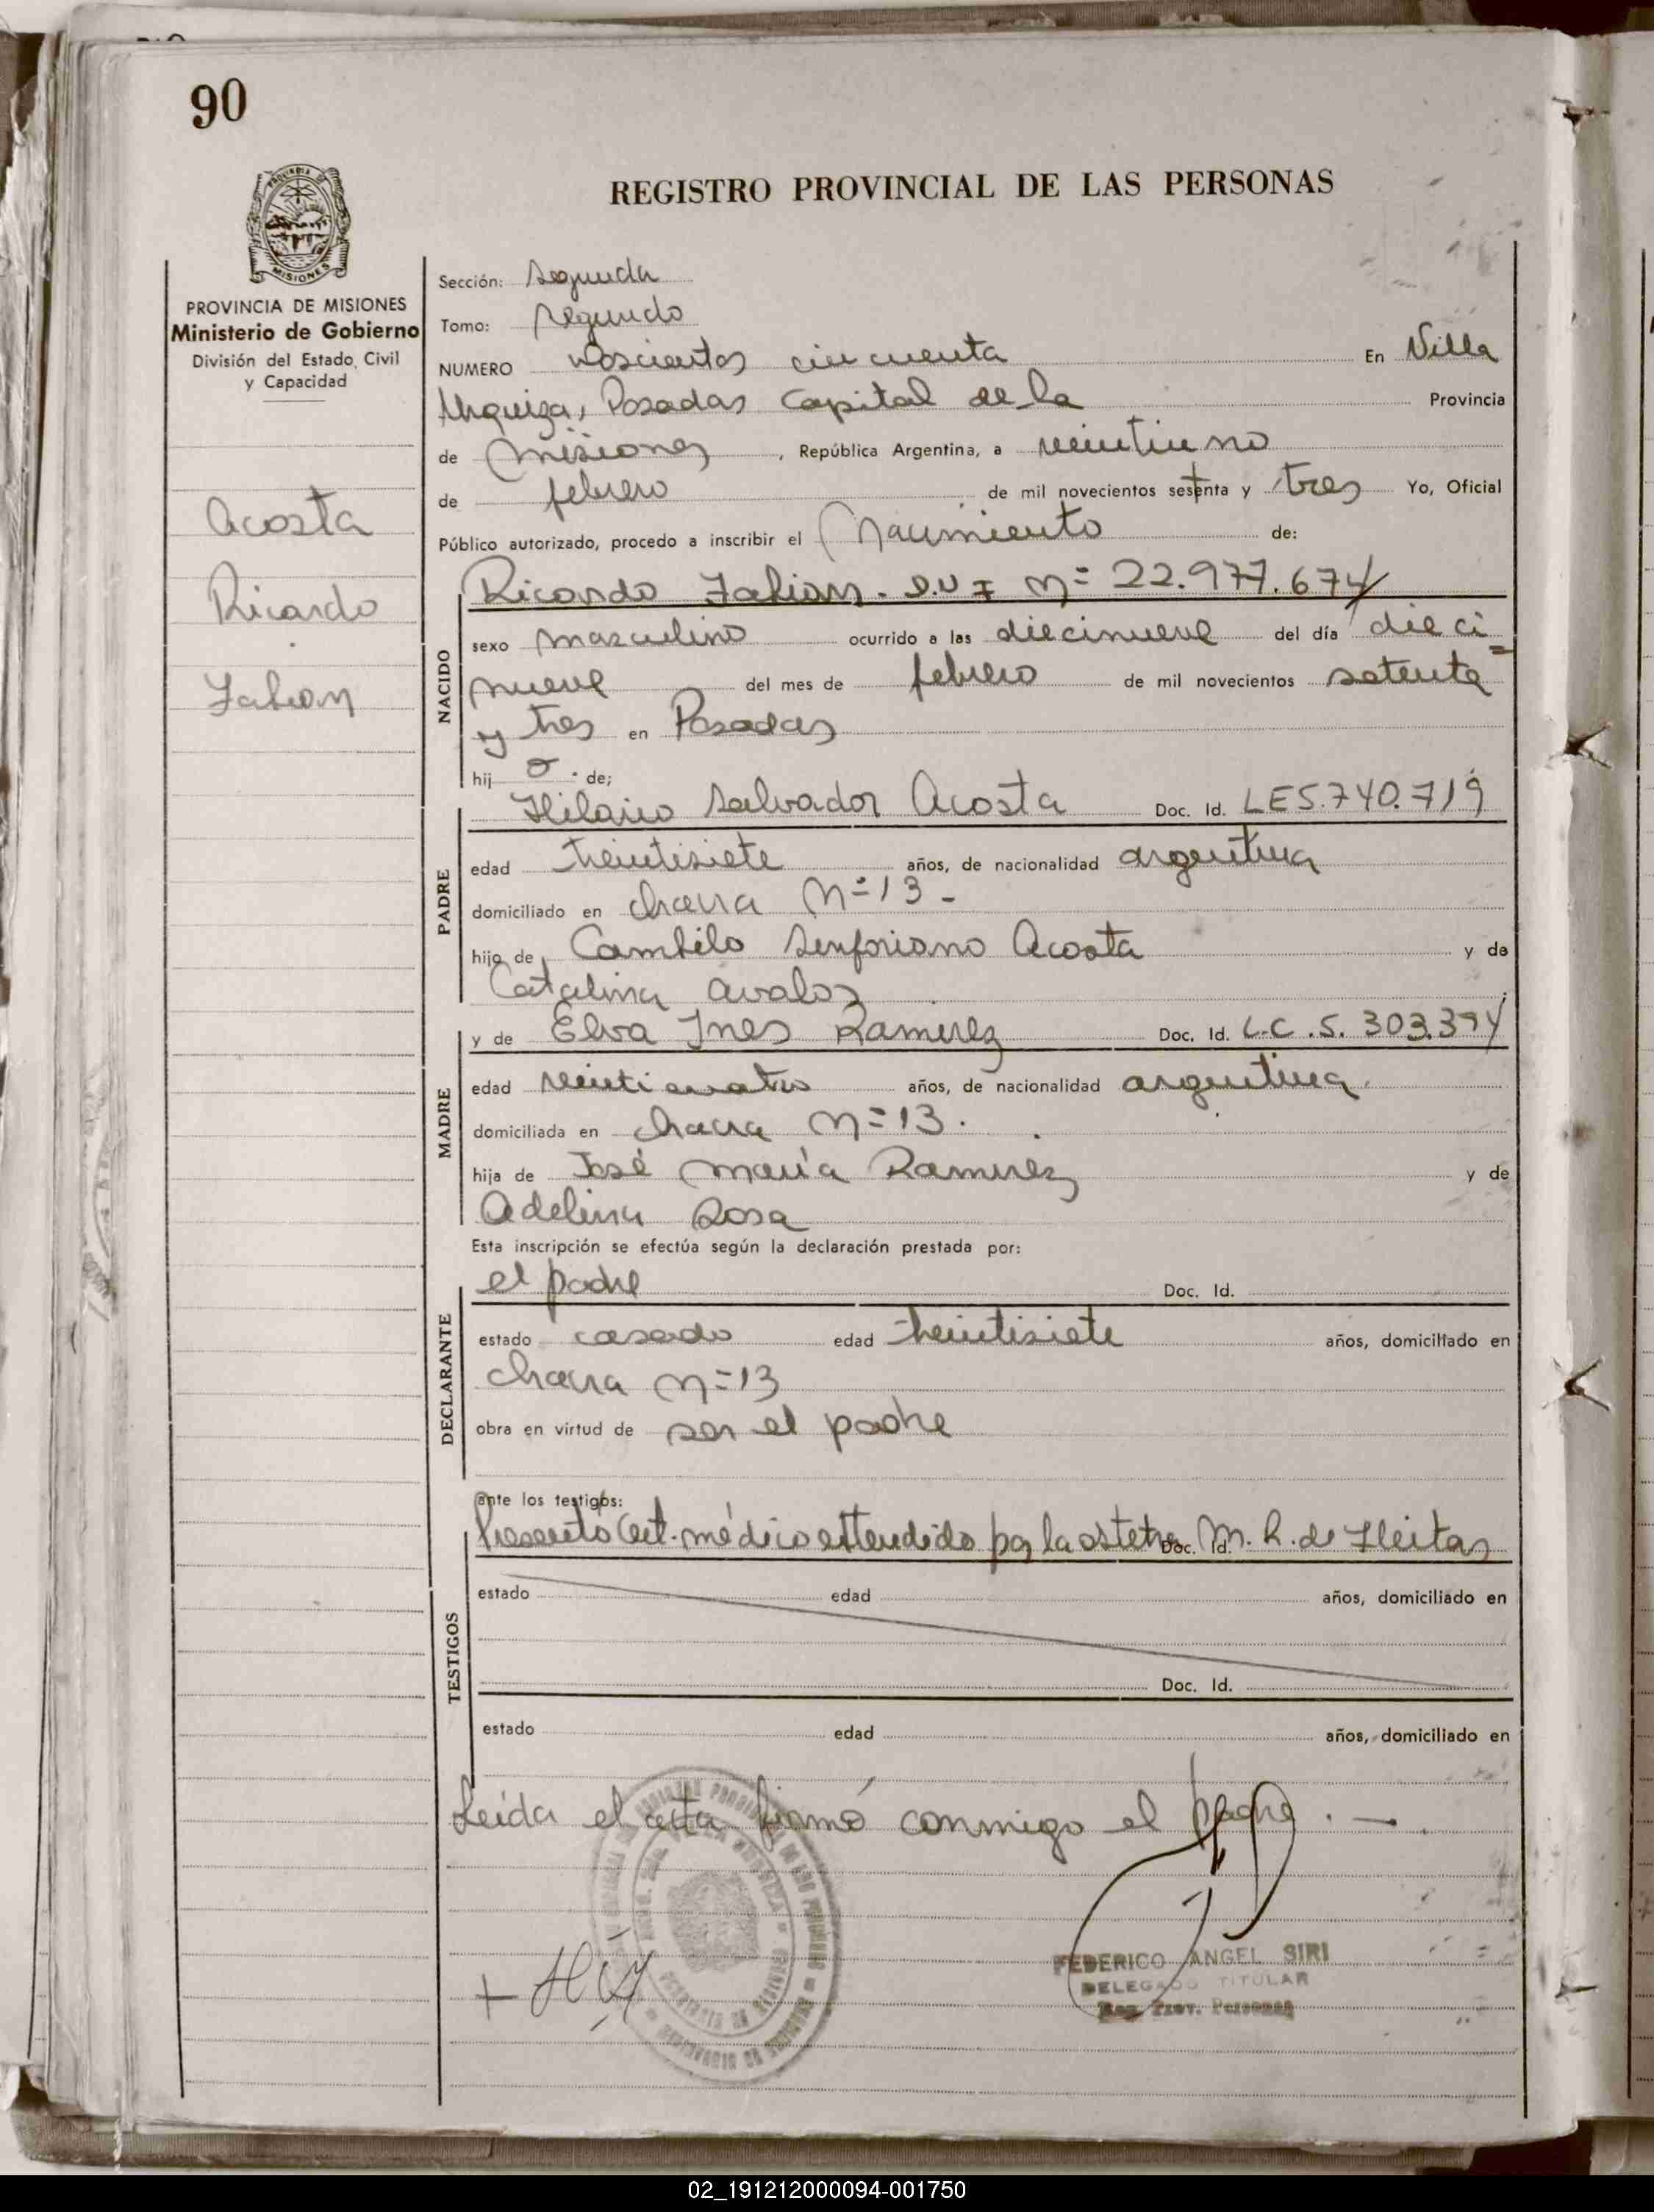 90
REGISTRO PROVINCIAL DE LAS PERSONAS
PROVINCIA DE MISIONES
Ministerio de Gobierno
División del Estado Civil
y Capacidad
Acosta
Ricardo
Fabian
Sección: Segunda
Tomo: Segundo
NUMERO Doscientos cincuenta En Villa
Urquiza, Posadas Capital de la Provincia
de Misiones, República Argentina, a veintiuno
de febrero de mil novecientos setenta y tres Yo, Oficial
Público autorizado, procedo a inscribir el Nacimiento de:
Ricardo Fabian. D.U I Nº 22.977.674
NACIDO
sexo masculino ocurrido a las diecinueve del día dieci=
nueve del mes de febrero de mil novecientos setenta
y tres en Posadas
hij o. de;
Hilario Salvador Acosta Doc. Id. LE5.740.719
PADRE
edad veintisiete años, de nacionalidad argentina
domiciliado en chacra Nº 13 -
hijo de Sinforiano Acosta y de
Catalina Avalos
y de Elva Ines Ramirez Doc. Id. L.C.5.303.394
MADRE
edad veinticuatro años, de nacionalidad argentina.
domiciliada en chacra Nº 13.
hija de José María Ramirez y de
Adelina Rosa
Esta inscripción se efectúa según la declaración prestada por:
el padre Doc. Id.
DECLARANTE
estado casado edad veintisiete años, domiciliado en
chacra Nº 13
obra en virtud de ser el padre
ante los testigos:
Presentó Cert. médico extendido por la obstetra Doc. Id. M. R. de Fleitas
TESTIGOS
estado edad años, domiciliado en
Doc. Id.
estado edad años, domiciliado en
Leída el acta firmó conmigo el padre. —.
FEDERICO ANGEL SIRI
DELEGADO TITULAR
Reg. Prov. Personas
02_191212000094-001750